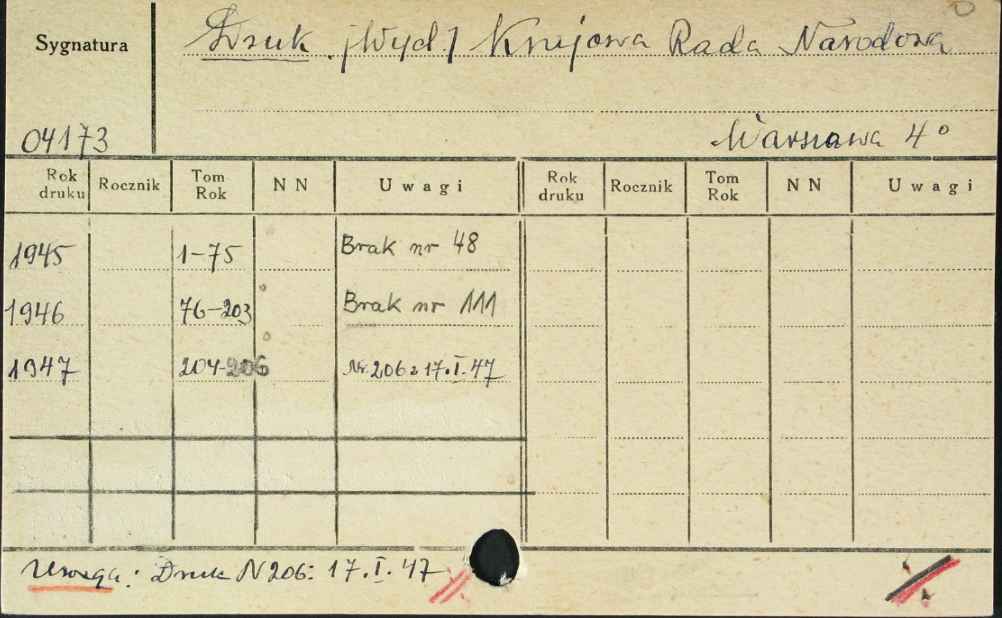 Sygnatura
Druk /Wyd./ Krajowa Rada Narodowa
04173
Warszawa 4°
Rok druku Rocznik Tom Rok NN Uwagi Rok druku Rocznik Tom Rok NN Uwagi
1945 1-75 Brak nr 48
1946 76-203 Brak nr 111
1947 204-206 Nr. 206 z 17.I.47
Uwaga: Druk N 206: 17.I.47